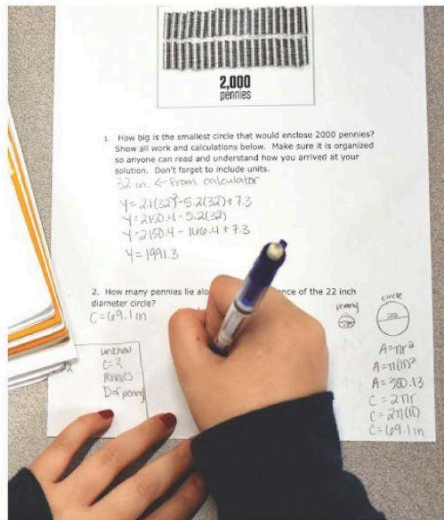 2,000
pennies
1. How big is the smallest circle that would enclose 2000 pennies?
Show all work and calculations below. Make sure it is organized
so anyone can read and understand how you arrived at your
solution. Don't forget to include units.
32 in. ← from calculator
y = 2.1(32)²-5.2(32)+7.3
y = 2150.4 - 5.2(32)
y = 2150.4 - 166.4 + 7.3
y = 1991.3
2. How many pennies lie alo nce of the 22 inch
diameter circle?
C = 69.1 in
penny circle
unknown
C = ?
pennies
D of penny
22
A = πr²
A = π(11)²
A = 380.13
C = 2πr
C = 2π(11)
C = 69.1 in